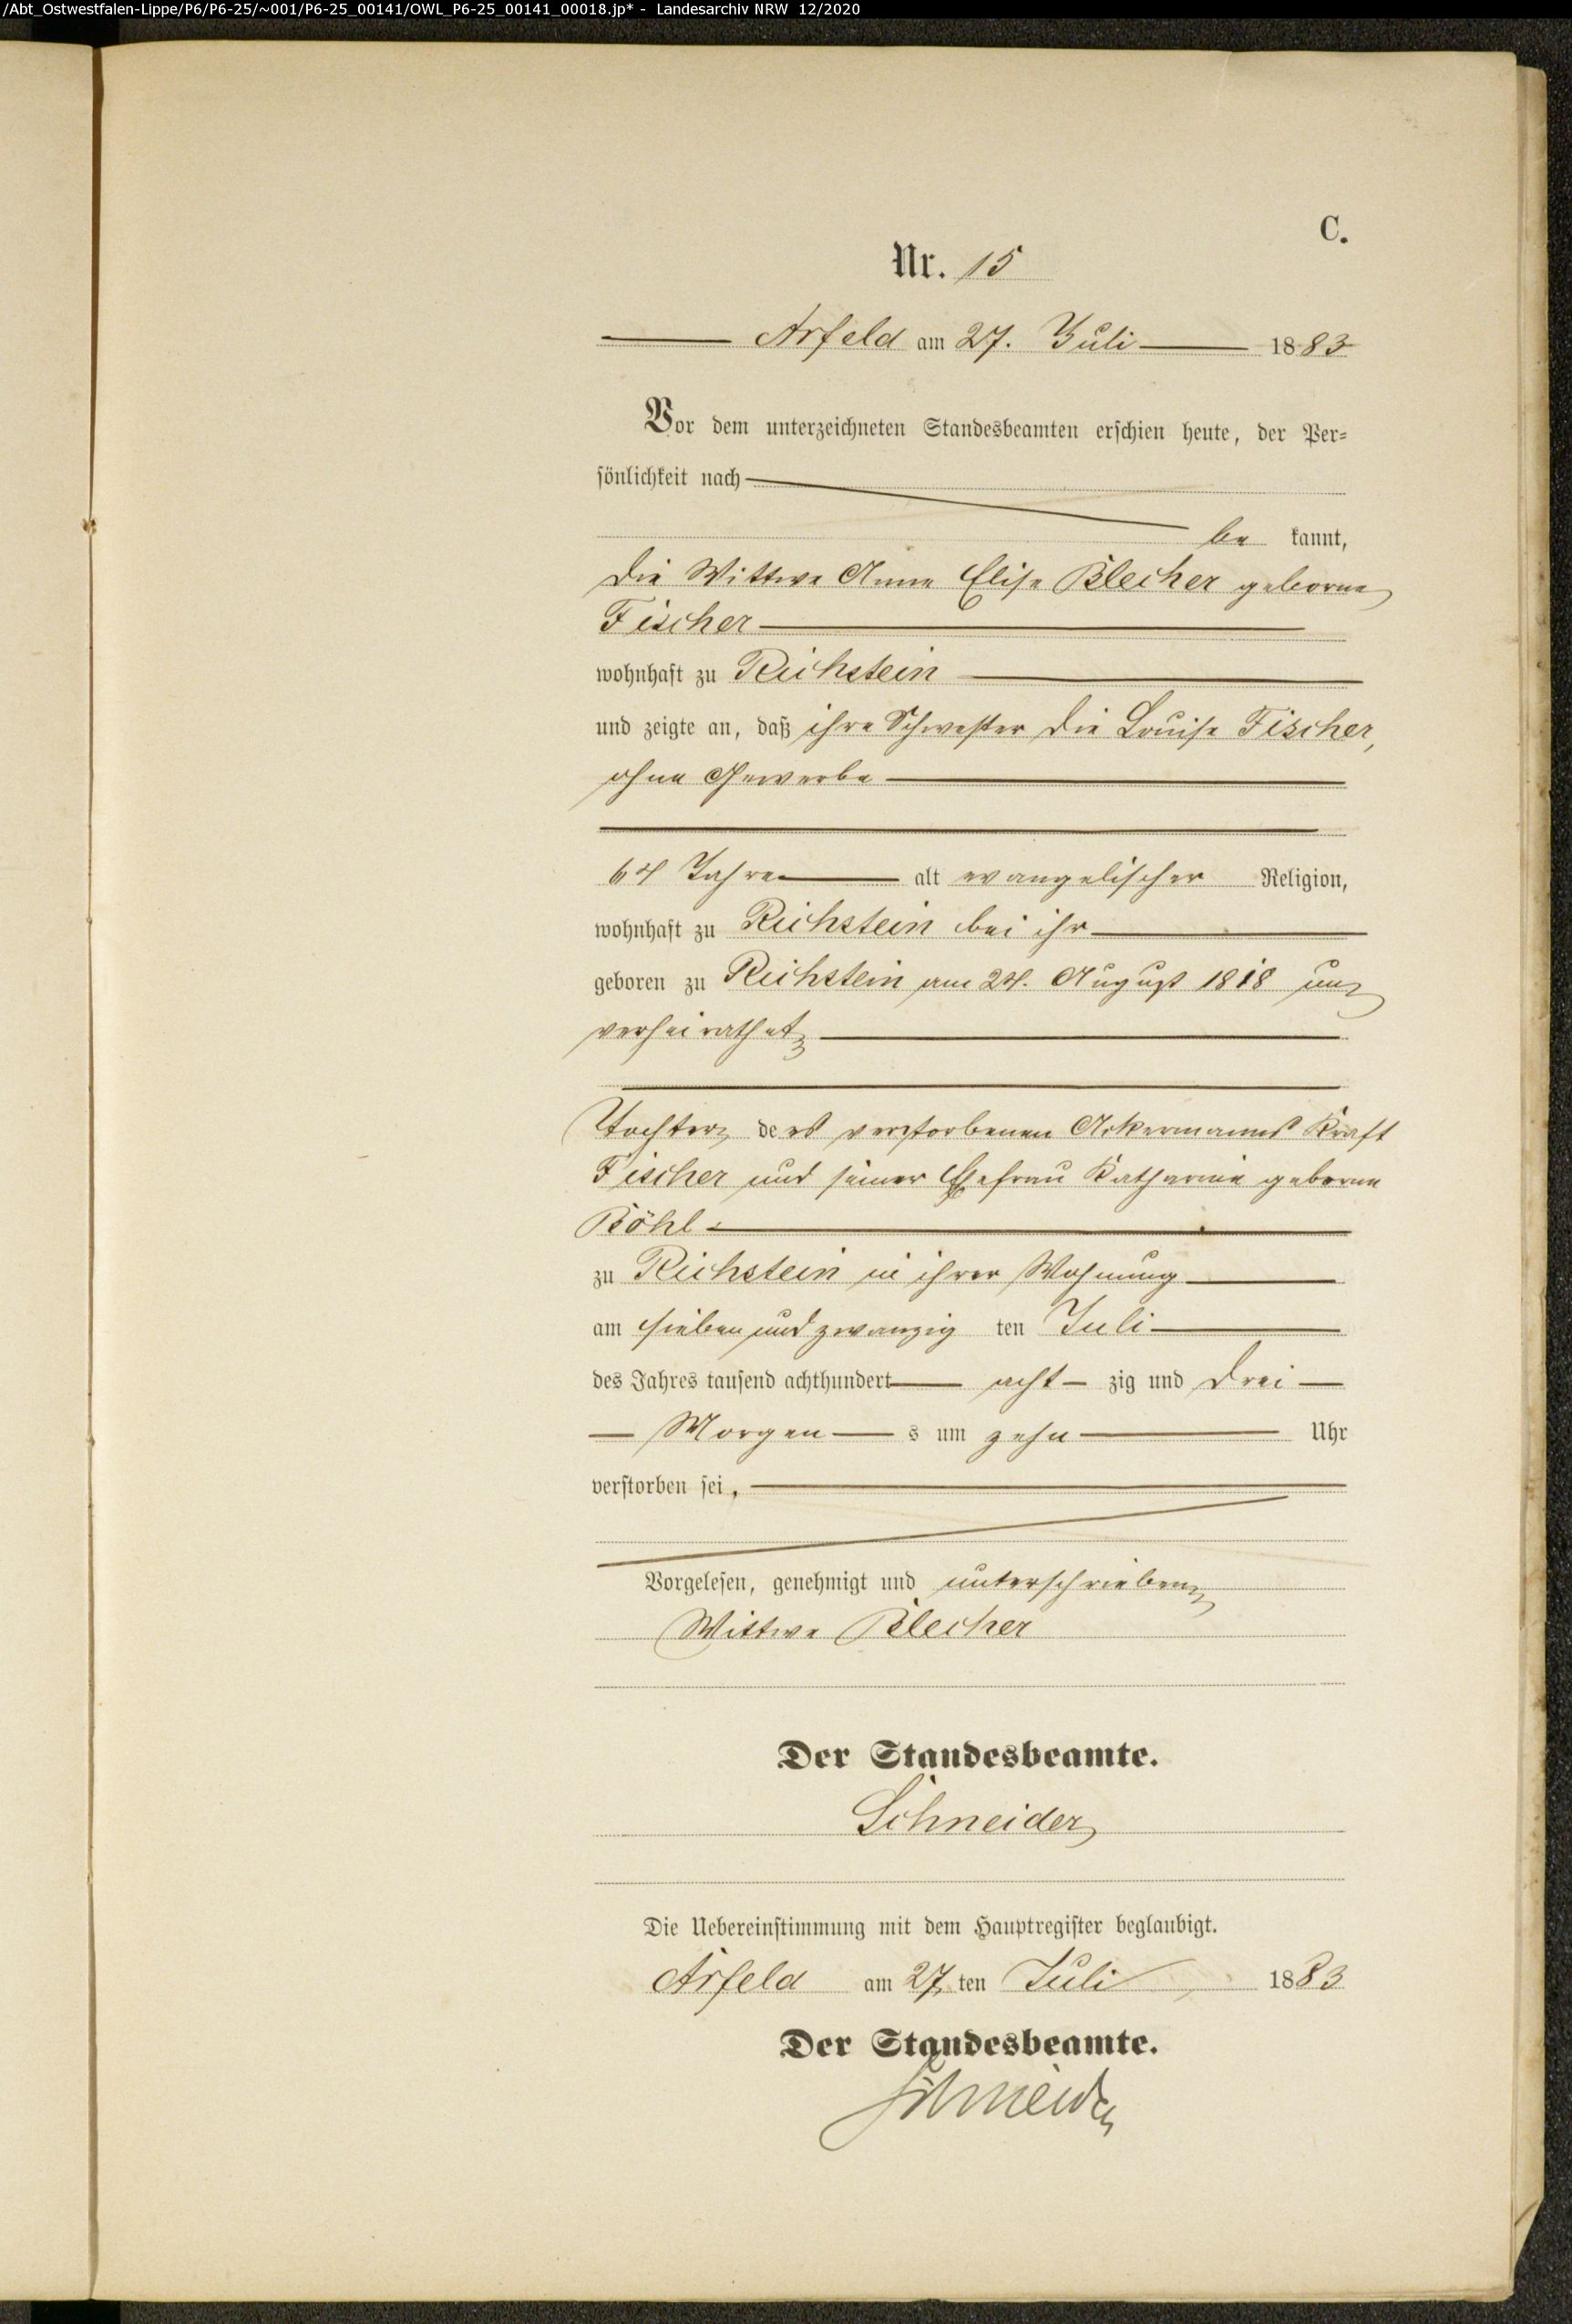 /Abt_Ostwestfalen-Lippe/P6/P6-25/~001/P6-25_00141/OWL_P6-25_00141_00018.jp* - Landesarchiv NRW 12/2020
C.
Nr. 15
Arfeld am 27. Juli 1883
Vor dem unterzeichneten Standesbeamten erschien heute, der Per-
sönlichkeit nach
be kannt,
die Wittwe Anne Elise Blecher geborne
Fischer
wohnhaft zu Richstein
und zeigte an, daß ihre Schwester die Louise Fischer,
ohne Gewerbe
64 Jahre alt evangelischer Religion,
wohnhaft zu Richstein bei ihr
geboren zu Richstein am 24. August 1818 un
verheirathet
Tochter des verstorbenen Ackermanns Kraft
Fischer und seiner Ehefrau Katharine geborne
Böhl
zu Richstein in ihrer Wohnung
am sieben und zwanzig ten Juli
des Jahres tausend achthundert acht zig und drei
Morgen s um zehn Uhr
verstorben sei,
Vorgelesen, genehmigt und unterschrieben
Wittwe Blecher
Der Standesbeamte.
Schneider
Die Uebereinstimmung mit dem Hauptregister beglaubigt.
Arfeld am 27. ten Juli 1883
Der Standesbeamte.
Schneider